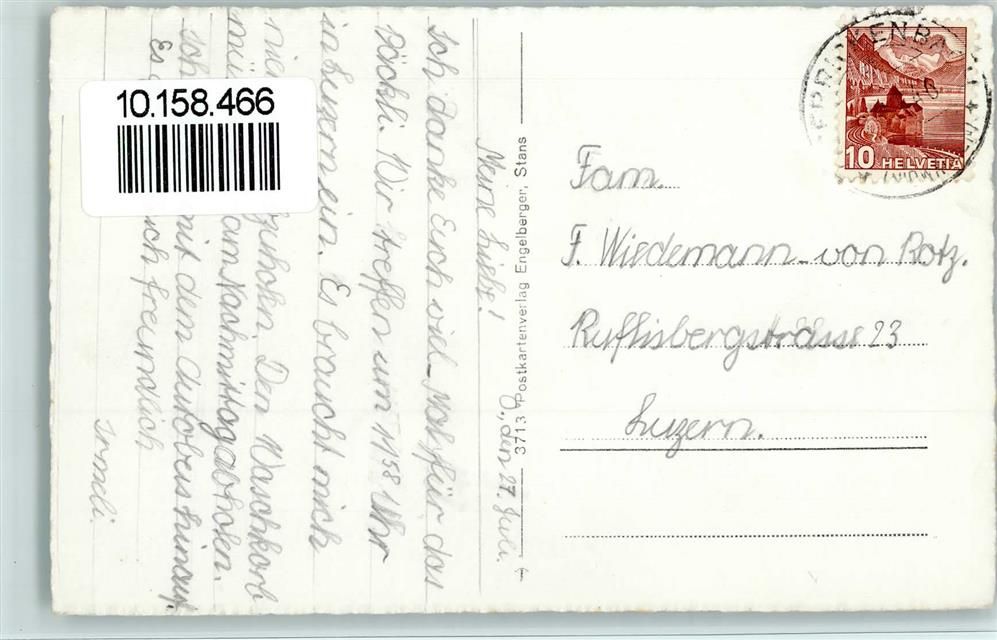 10.158.466
O, den 27. Juli.
Meine Liebe!
Ich danke Euch viel-mal für das
Säckli. Wir treffen um 11 58 Uhr
in Luzern ein. Es braucht mich
Den Waschkorb
am Nachmittag abholen.
Ich mit dem Autobus hinauf.
Es freundlich
Irmeli.
3713 Postkartenverlag Engelberger, Stans
10 HELVETIA
Fam.
F. Wiedemann-von Rotz.
Ruflisbergstrasse 23
Luzern.